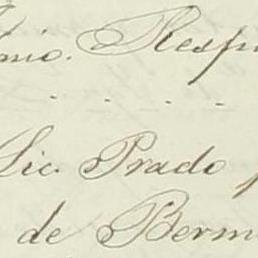 nio. Resp
Lic. Prado
de Berm